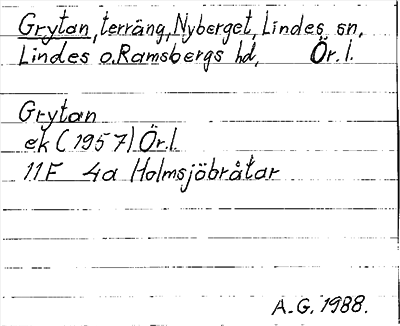 Grytan, terräng, Nyberget, Lindes sn,
Lindes o. Ramsbergs hd, Ör. l.
Grytan
ek (1957) Ör. l.
11F 4a Holmsjöbråtar
A.G. 1988.